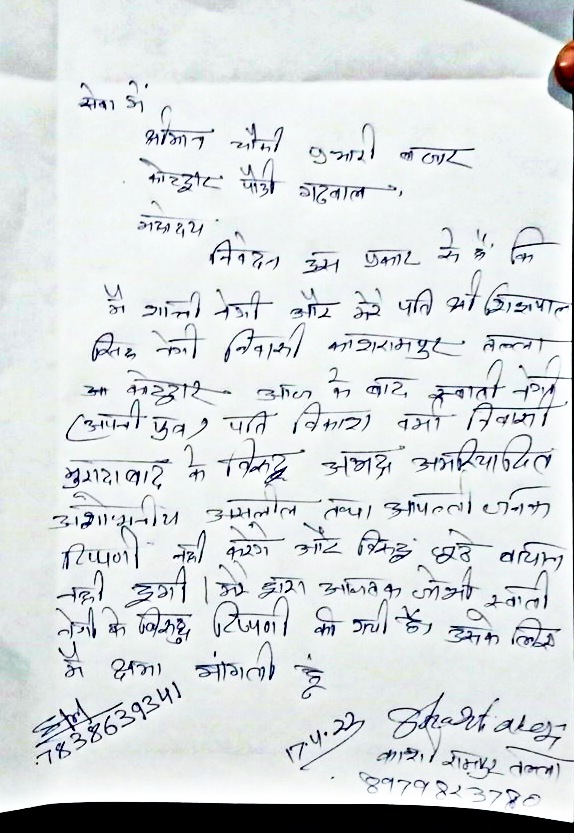 सेवा में
श्रीमान चौकी प्रभारी बाजार
कोटद्वार पौडी गढवाल,
महोदय
निवेदन इस प्रकार से है कि
मै शान्ती नेगी और मेरे पति श्री शिशपाल
सिंह नेगी निवासी काशीरामपुर तल्ला
कोटद्वार आज के बाद स्वाती नेगी
(अपनी पुत्र) पति विकाश वर्मा निवासी
मुरादाबाद के विरुद्ध अभद्र अमर्यादित
अशोभनीय असलील तथा आपत्ती जनक
टिप्पणी नही करेंगे और विरुद्ध झूठे बयान
नही दूगी। मेरे द्वारा आजतक जो भी स्वाती
नेगी के विरुद्ध टिप्पणी की गयी है, उसके लिए
मै क्षमा मांगती हूं
7838639341
17.4.23
Shanti negi
काशी रामपुर तल्ला
8979823780